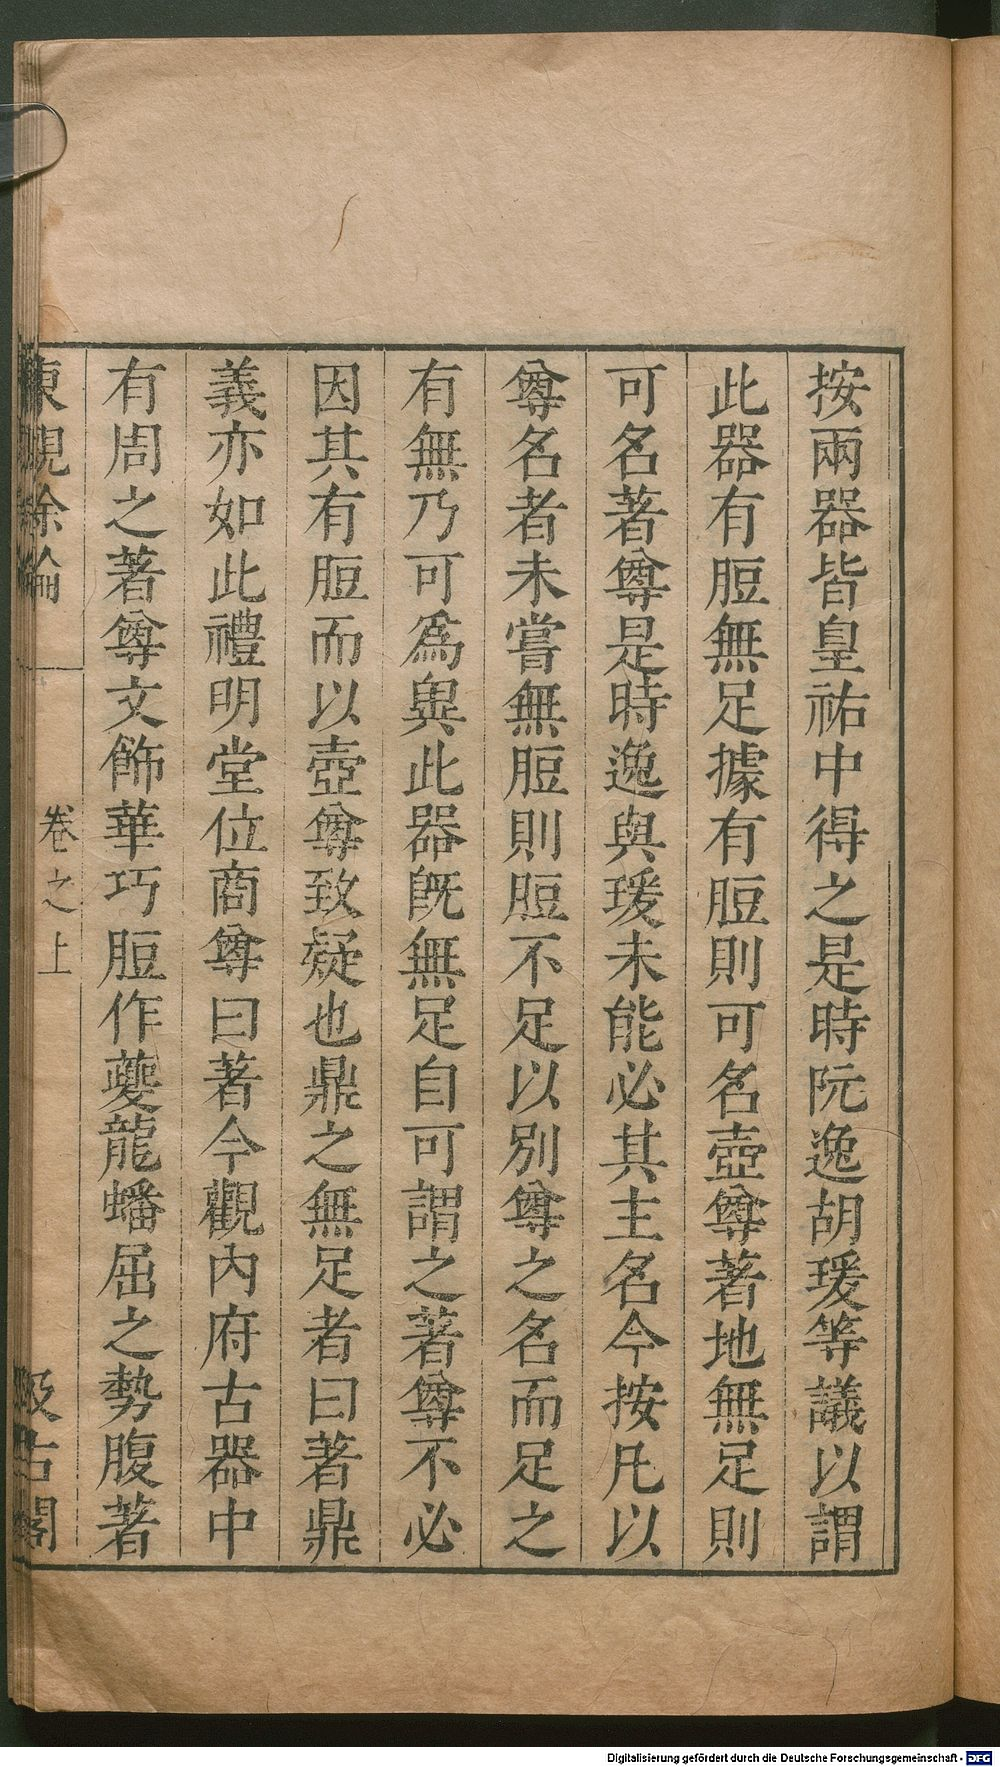 按兩器皆皇祐中得之是時阮逸胡瑗等議以謂
此器有脰無足據有脰則可名壺尊著地無足則
可名著尊是時逸與瑗未能必其主名今按凡以
尊名者未嘗無脰則脰不足以別尊之名而足之
有無乃可爲異此器旣無足自可謂之著尊不必
因其有脰而以壺尊致疑也鼎之無足者曰著鼎
義亦如此禮明堂位商尊曰著今觀內府古器中
有周之著尊文飾華巧脰作夔龍蟠屈之勢腹著
東觀餘論 卷之上 汲古閣
Digitalisierung gefördert durch die Deutsche Forschungsgemeinschaft - DFG